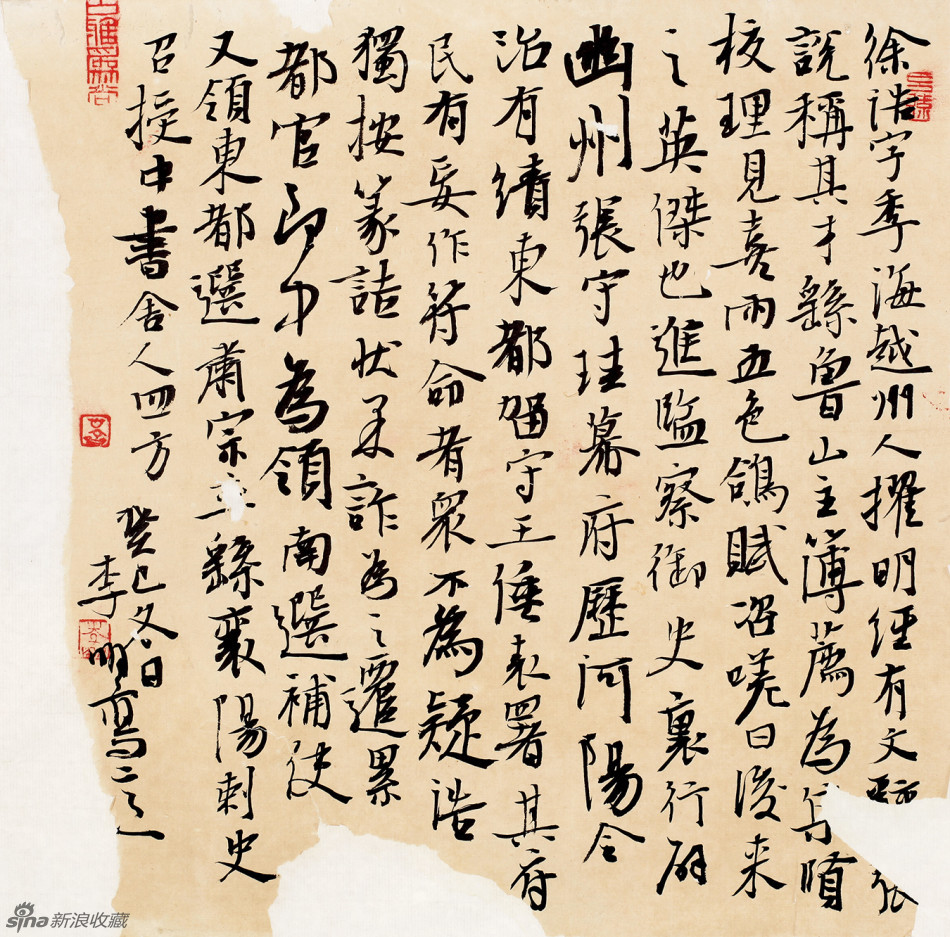 徐浩字季海越州人擢明經有文辭張
說稱其才繇魯山主簿薦為集賢
校理見喜雨五色鴿賦咨嗟曰後来
之英傑也進監察御史裏行辟
幽州張守珪幕府歷河陽令
治有績東都留守王倕表署其府
民有妄作符命者衆不為疑浩
獨按篆詰狀果詐為之遷累
都官郎中為領南選補使
又領東都選肅宗立繇襄陽刺史
召授中書舍人四方
癸巳冬日
李明
sina新浪收藏